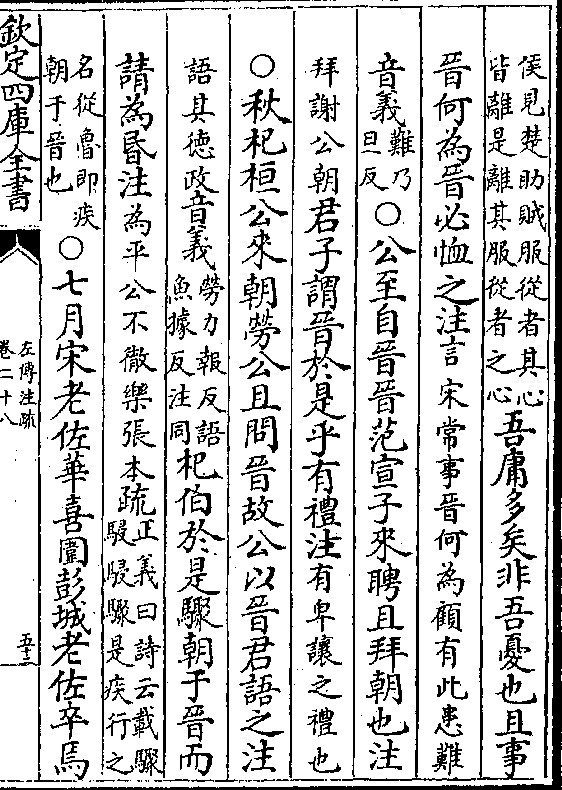 侯見楚助賊服從者其心
皆離是離其服從者之心
吾庸多矣非吾憂也且事
晉何為晉必恤之注言宋常事晉何為顧有此患難
音義難乃
旦反
○公至自晉晉范宣子來聘且拜朝也注
拜謝公朝君子謂晉於是乎有禮注有卑讓之禮也
○秋杞桓公來朝勞公且問晉故公以晉君語之注
語其德政音義勞力報反語
魚據反注同
杞伯於是驟朝于晉而
請為昏注為平公不徹樂張本疏正義曰詩云載驟
駸駸驟是疾行之
名從魯即疾
朝于晉也
○七月宋老佐華喜圍彭城老佐卒焉
欽定四庫全書
左傳注疏
卷二十八
五十三